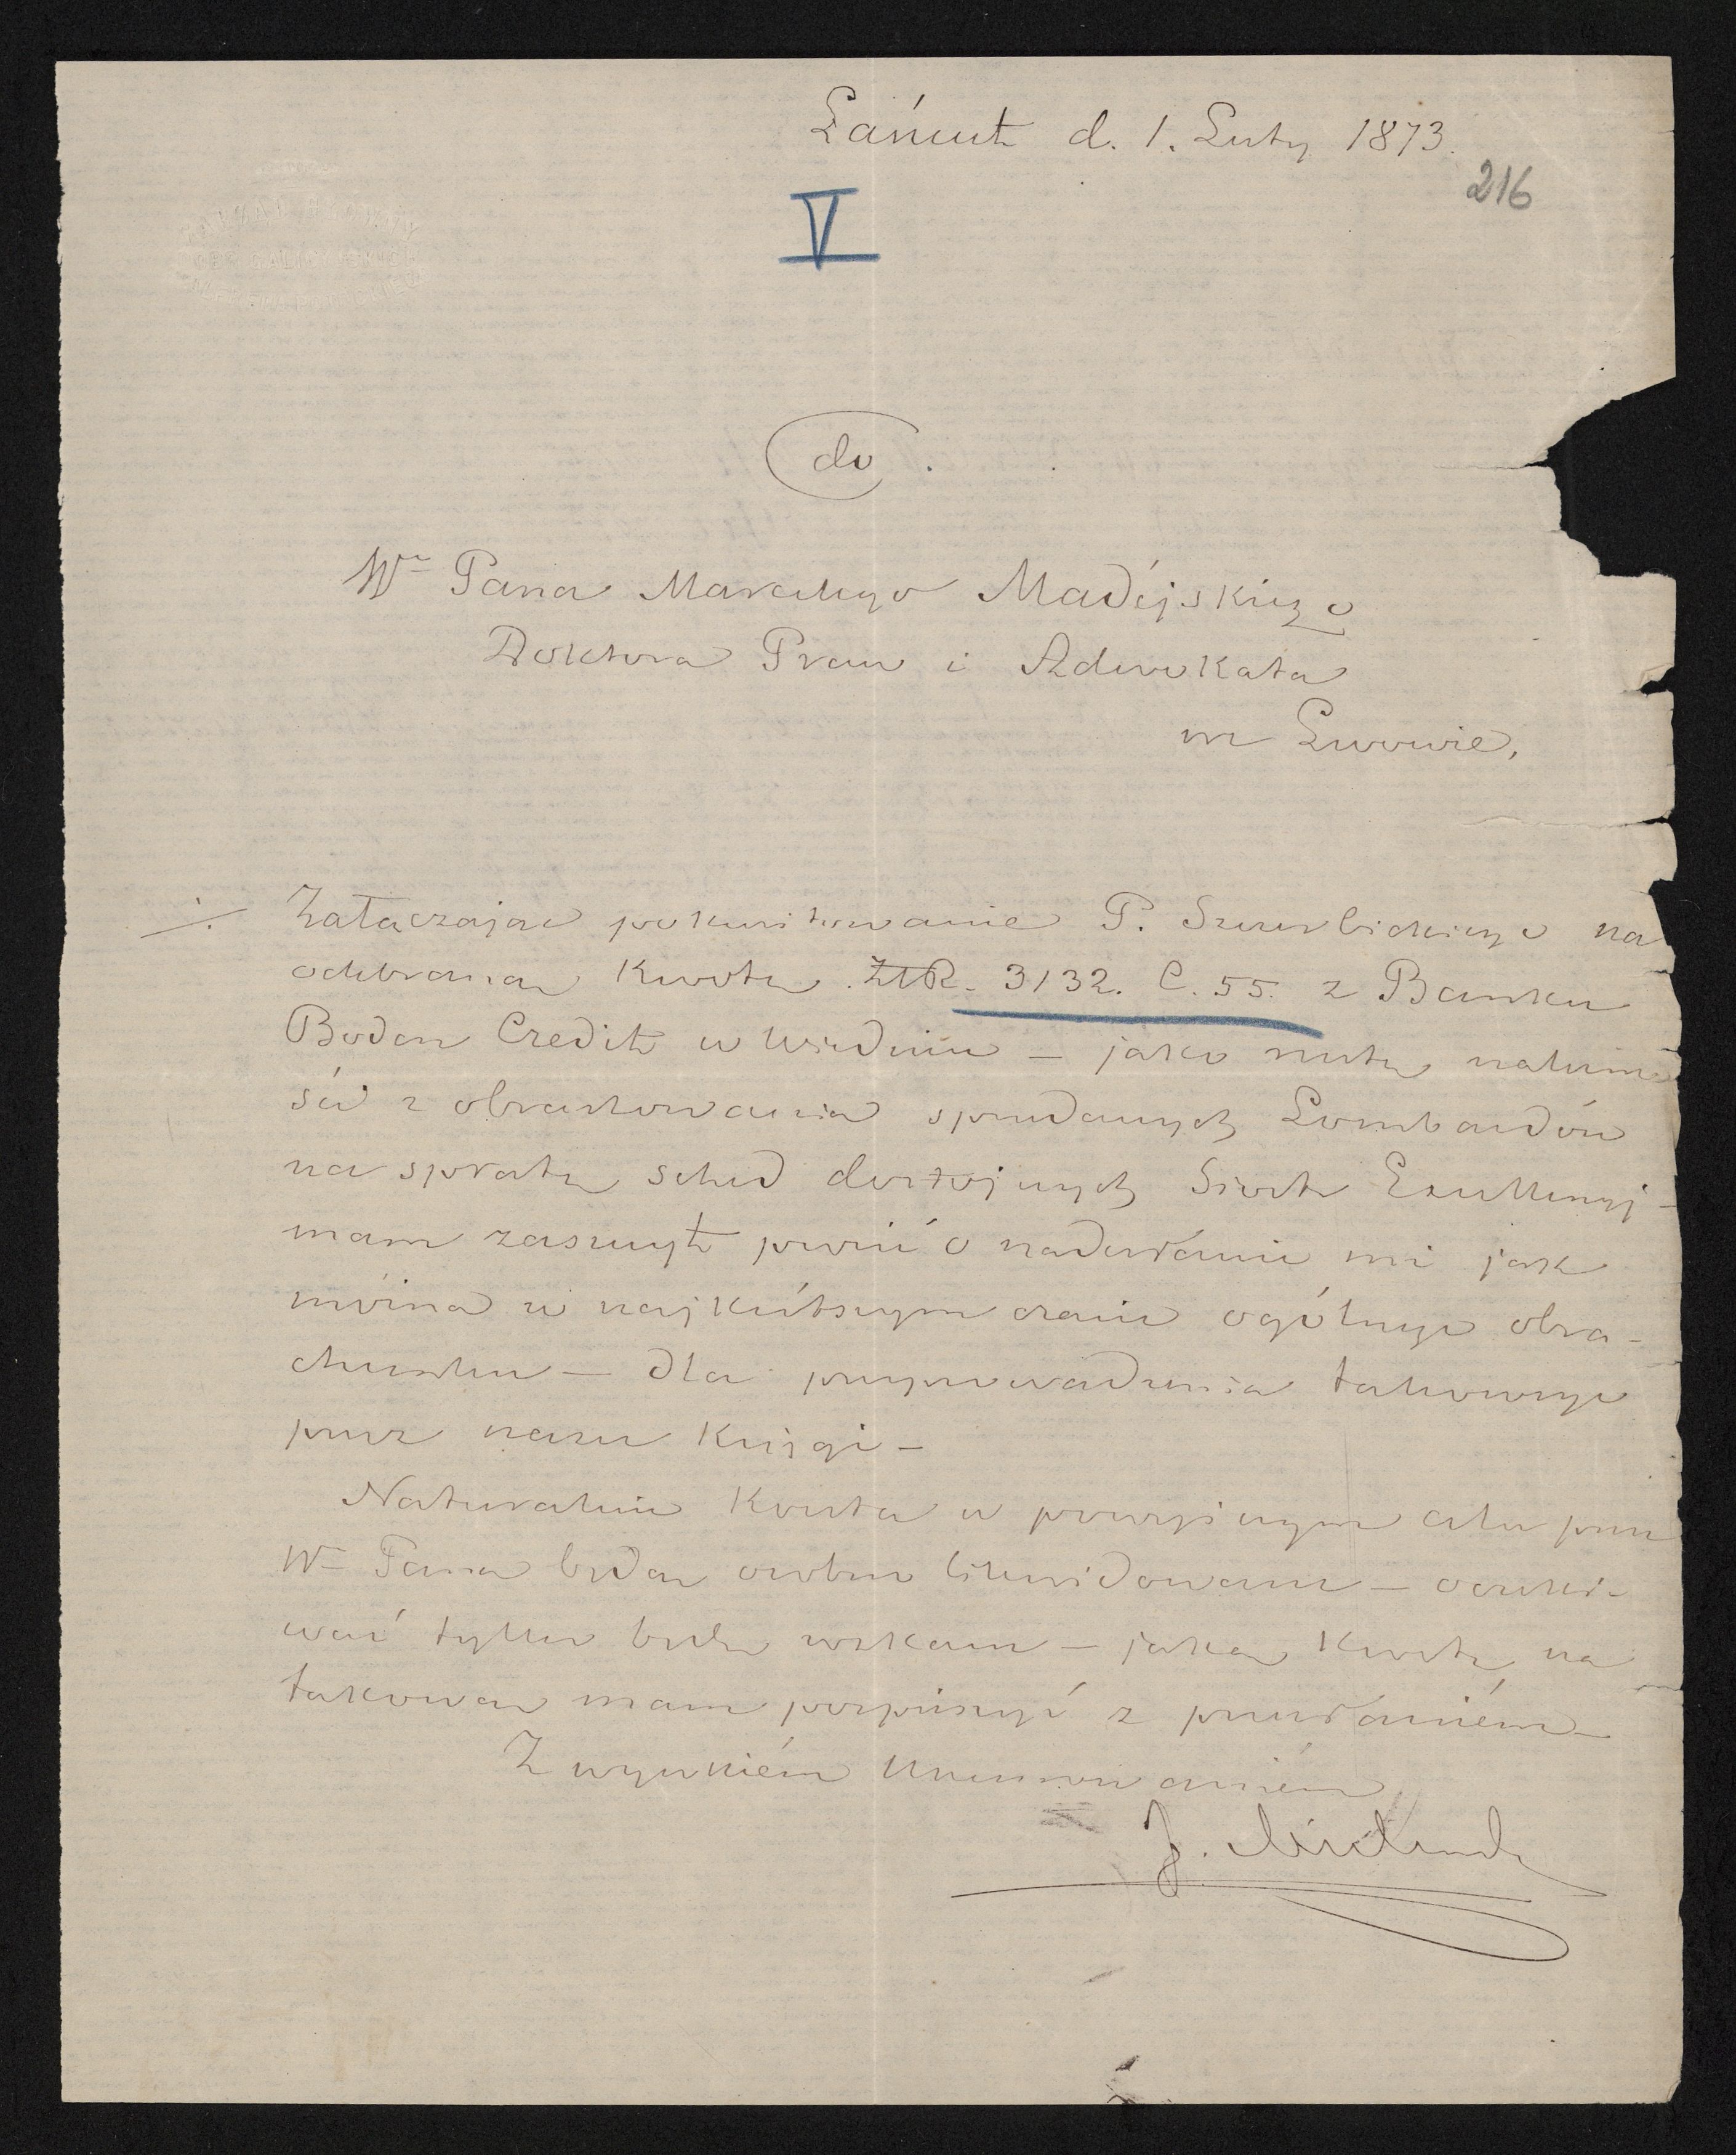 Łańcut d. 1. Luty 1873.
216
V
do
Wº Pana Marcelego Madéjskiego
Doktora Praw i Adwokata
we Lwowie,
Załączając pokwitowanie P. na
odebraną kwotę ZłR. 3132. C. 55. z Banku
Boden Credit w Wiedniu – jako resztę należno
ści z obrachowania sprzedanych Lombardów
na spłatę sched dostojnych Siostr Excellencyj –
mam zaszczyt prosić o nadesłanie mi jak
można w najkrótszym czasie ogólnego obra-
chunku – dla przeprowadzenia takowego
przez nasze Księgi –
Naturalnie Koszta w powyższym celu przez
Wº Pana będą osobno likwidowane – oczeki-
wać tylko będę wskazu – jaką kwotę na
takową mam pospieszyć z przesłaniém –
Z wysokiém Uszanowaniém
J.